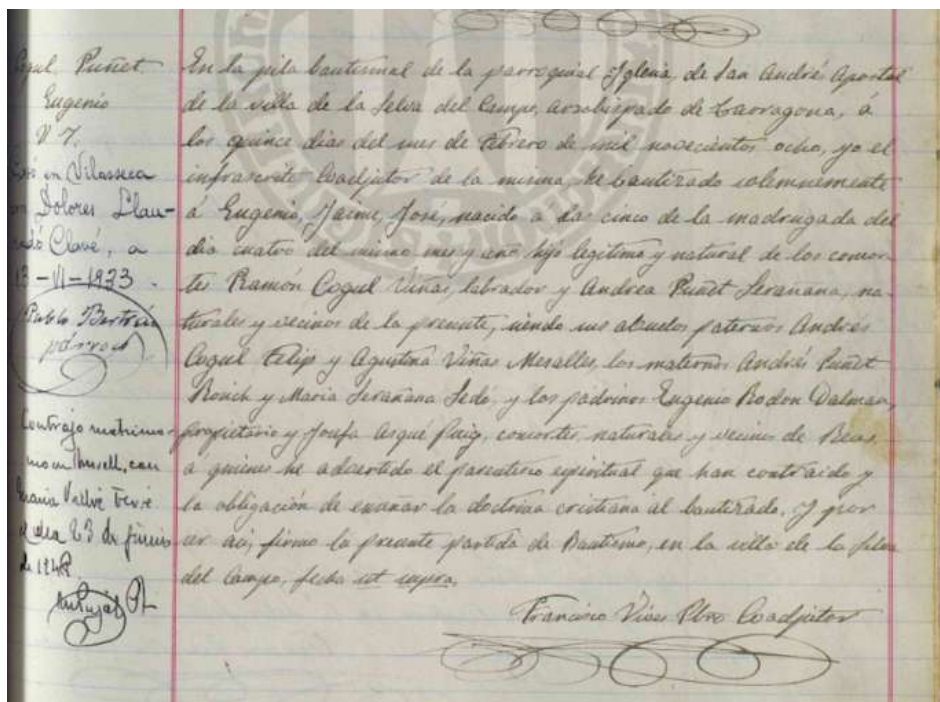 Coqul Puñet
Eugenio
N 7.
Casó en Vilaseca
con Dolores Llau-
radó Clavé, a
13-VI-1933.
Pablo Bertrán
párroco
Contrajo matrimo-
nio en Musell, con
Maria Vallvé
el dia 23 de junio
de 1948
En la pila bautismal de la parroquial Iglesia, de San Andrés Apostol
de la villa de la Selva del Campo, arzobispado de Tarragona, á
los quince dias del mes de Febrero de mil novecientos ocho, yo el
infrascrito Coadjutor de la misma, he bautizado solemnemente
á Eugenio, Jaime, José, nacido a las cinco de la madrugada del
dia cuatro del mismo mes y año hijo legitimo y natural de los consor-
tes Ramón Coqul Viñas, labrador y Andrea Puñet Serañana, na-
turales y vecinos de la presente, siendo sus abuelos paternos Andrés
Coqul Felip y Agustina Viñas Mesalles, los maternos Andrés Puñet
Roich y Maria Serañana Sedó, y los padrinos Eugenio Rodon Dalmau,
propietario y Josefa Asqué Puig, consortes, naturales y vecinos de Reus
a quienes he advertido el parentesco espiritual que han contraido y
la obligación de enseñar la doctrina cristiana al bautizado. Y por
ser asi, firmo la presente partida de Bautismo, en la villa de la Selva
del Campo, fecha ut supra.
Francisco Vives Pbro Coadjutor